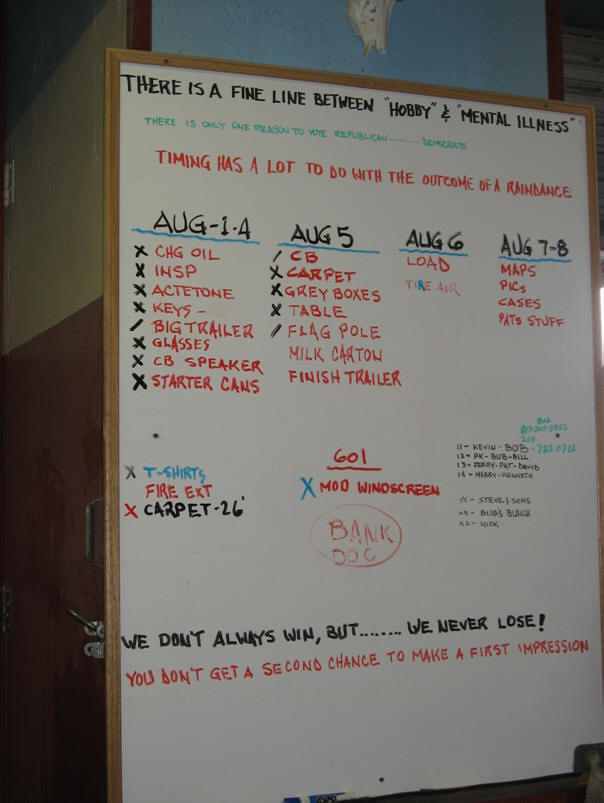 THERE IS A FINE LINE BETWEEN "HOBBY" & "MENTAL ILLNESS"
THERE IS ONLY ONE REASON TO VOTE REPUBLICAN.......... DEMOCRATS
TIMING HAS A LOT TO DO WITH THE OUTCOME OF A RAINDANCE
AUG-1-4
X CHG OIL
X INSP
X ACTETONE
X KEYS -
/ BIG TRAILER
X GLASSES
X CB SPEAKER
X STARTER CANS
AUG 5
/ CB
X CARPET
X GREY BOXES
X TABLE
/ FLAG POLE
MILK CARTON
FINISH TRAILER
AUG 6
LOAD
TIRE AIR
AUG 7-8
MAPS
PICS
CASES
PATS STUFF
X T-SHIRTS
FIRE EXT
X CARPET-26'
601
X MOD WINDSCREEN
BANK
DOC
11- KEVIN- BOB-
12- PK-BUB-BILL
13- JERRY-PAT-DAVID
14- MERRY-KENNETH
XX - STEVE & SONS
XX - BUB'S BUNCH
XX - NICK
WE DON'T ALWAYS WIN, BUT........ WE NEVER LOSE!
YOU DON'T GET A SECOND CHANCE TO MAKE A FIRST IMPRESSION